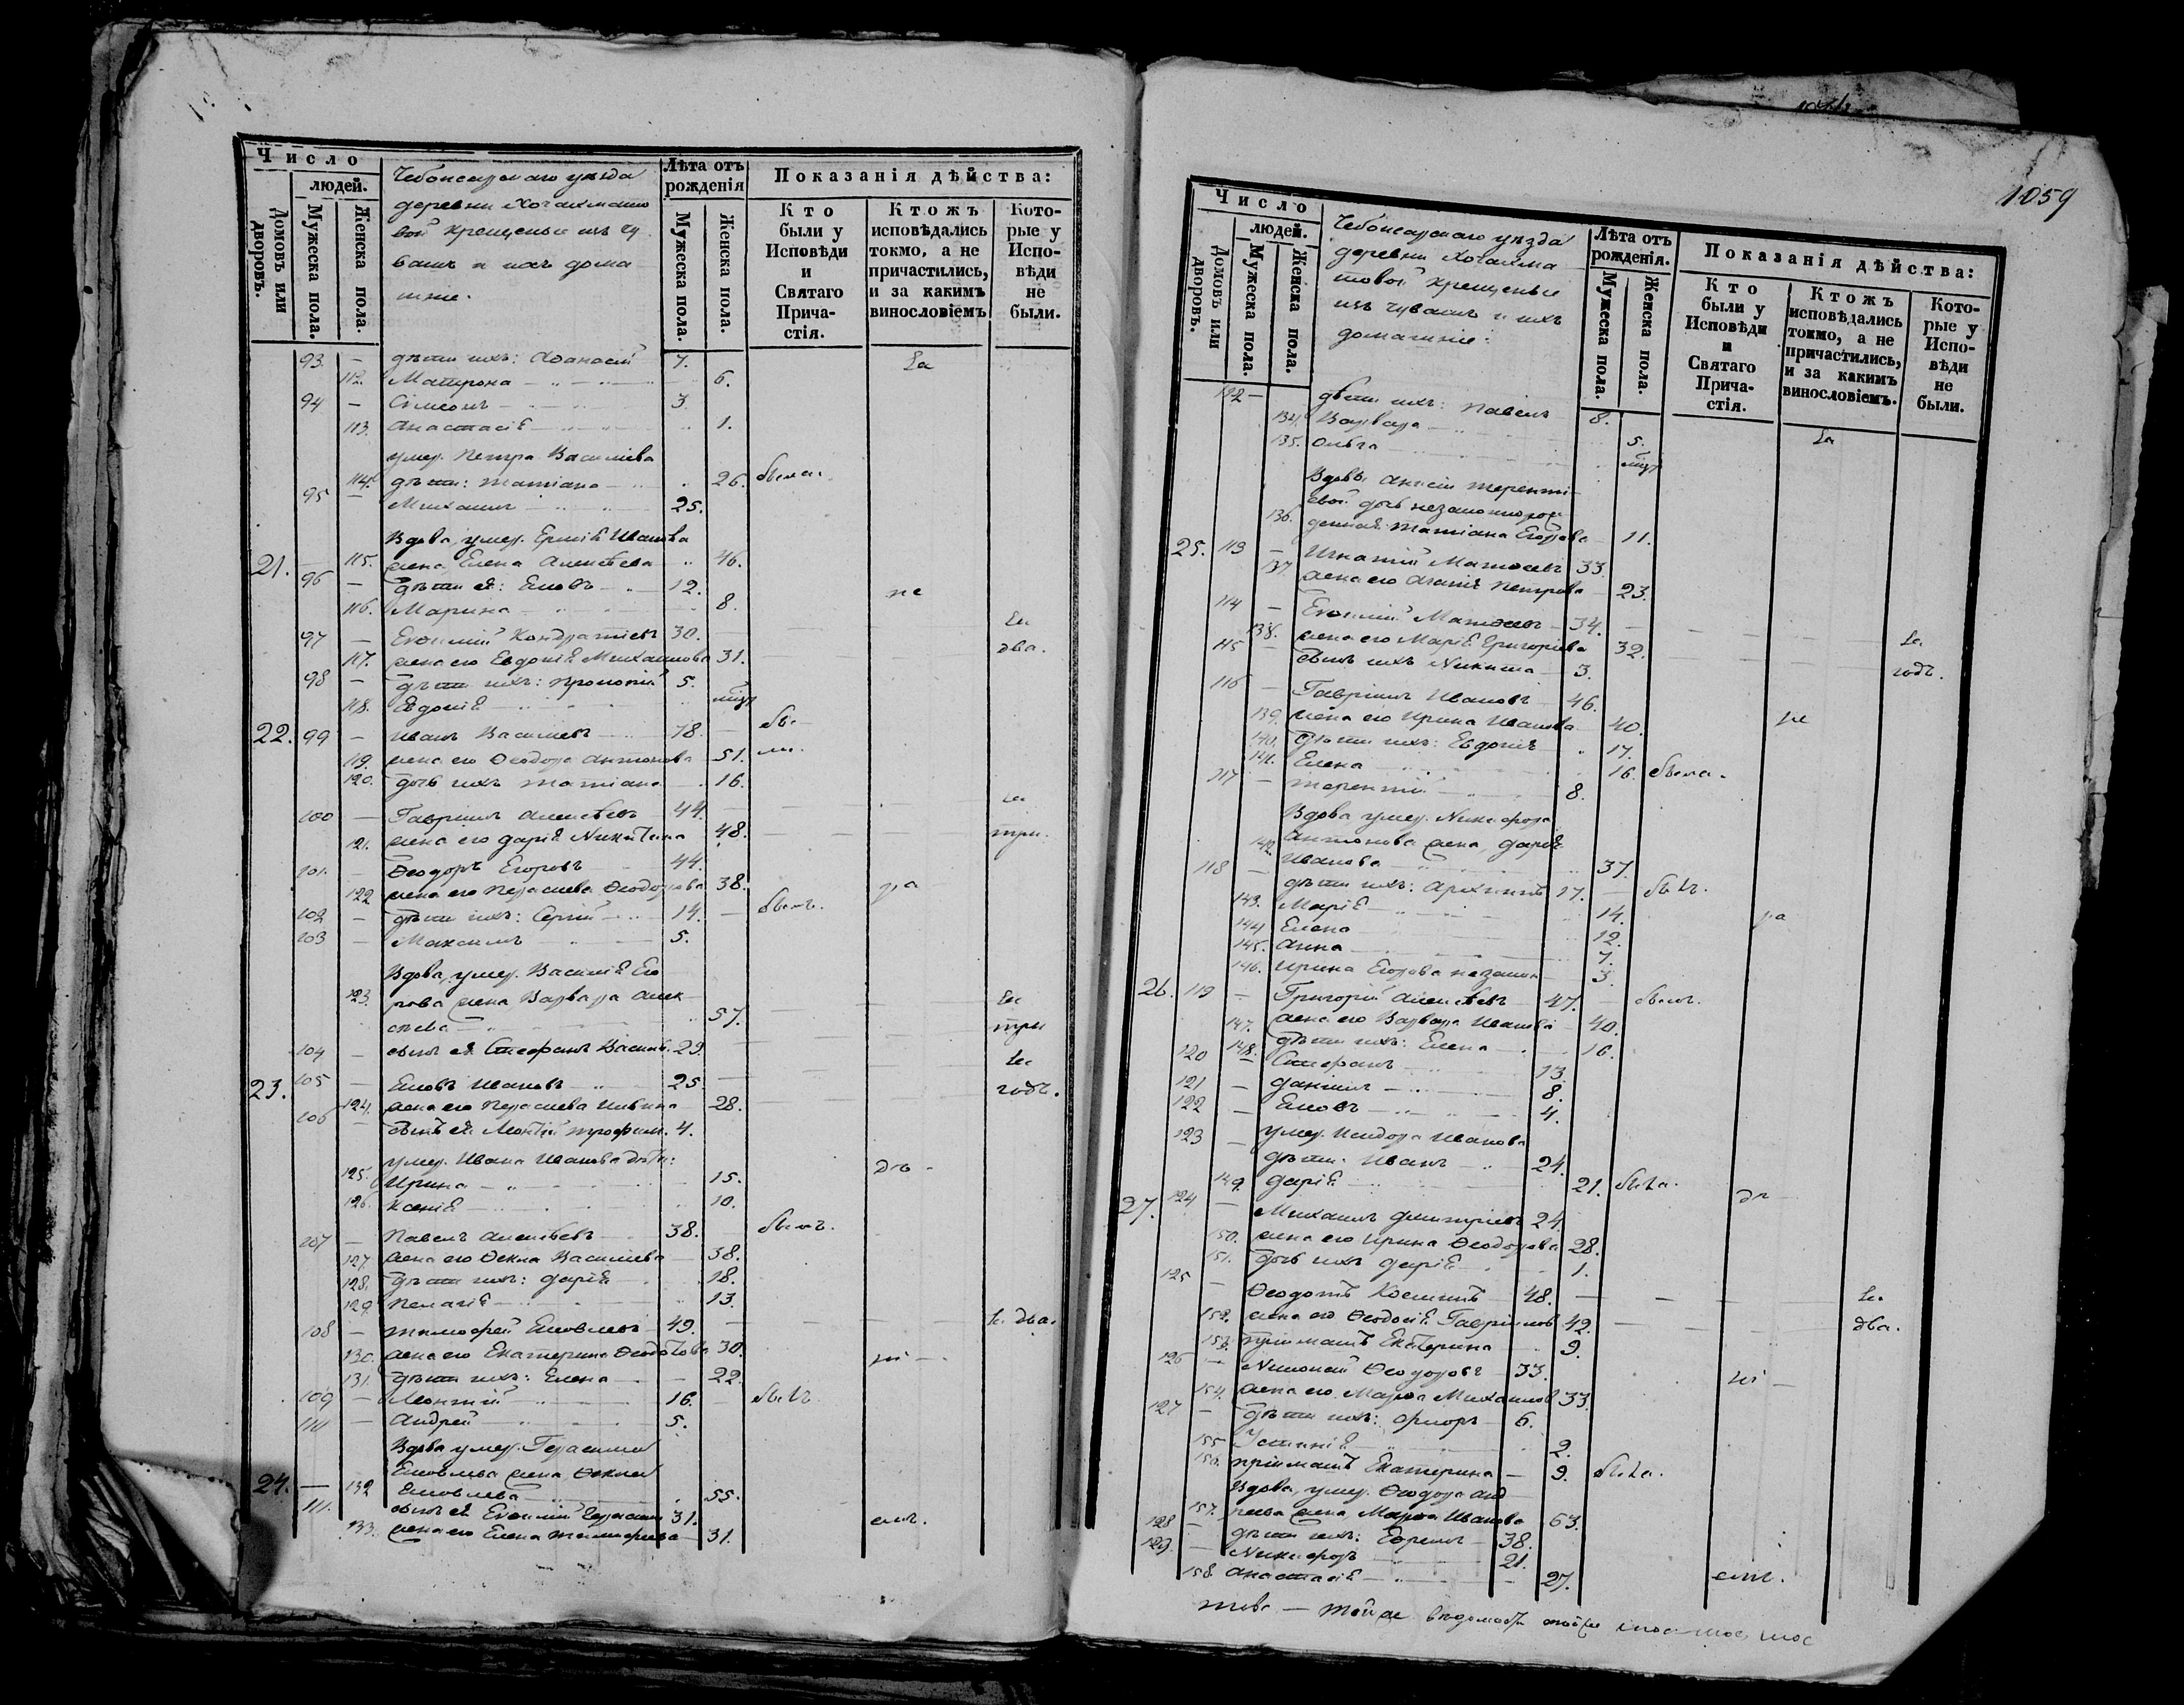 Число
людей.
Домовъ или дворовъ.
Мужеска пола.
Женска пола.
Чебоксарскаго уѣзда
деревни
вой крещеные изъ чу
вашъ и ихъ дома
шніе.
Лѣта отъ рожденія
Мужеска пола.
Женска пола.
Показанія дѣйства:
Кто были у Исповѣди и Святаго Причастія.
Ктожъ исповѣдались токмо, а не причастились, и за какимъ винословіемъ
Которые у Исповѣди не были.
93. — дѣти ихъ: Афанасій 7. за
112. Матрона 6.
94 — Сімеонъ 3.
113. Анастасія 1.
умер. Петра Василіева
114. дѣти: Татіана 26. была.
95 — Михаилъ 25.
Вдова, умер. Іванова
21. — 115. жена Елена Алексѣева 46.
96 — дѣти ея: Іаковъ 12. не
116. Марина 8.
97 — Евфимій Кондратіевъ 30. за
117. жена его Евдокія Михаилова 31. два.
98 — дѣти ихъ: Прокопій 5.
118. Евдокія
22. 99 — Иванъ Василіевъ 78. бы
119. жена его Ѳеодора Антонова 51. ли.
120. дочь ихъ Татіана 16.
100 — Гавріилъ Алексѣевъ 44. за
121. жена его Дарія Никитина 48. три.
101. — Ѳеодоръ Егоровъ 44.
122 жена его Параскева Ѳеодорова 38. ра
102 — дѣти ихъ: Сергій 14. — былъ.
103 — Максимъ 5.
Вдова, умер. Василія Его
123. рова жена Варвара Алек за
сѣева 57. три
104 — сынъ ея Стефанъ Васильев. 29. за
23. 105 — Іаковъ Ивановъ 25 годъ.
124. жена его Параскева 28.
106 — сынъ ея Леонтій Трофим. 4.
умер. Ивана Иванова дѣти:
125. Ирина 15. дѣ-
126. Ксенія 10.
107 — Павелъ Алексѣевъ 38. былъ.
127. жена его Ѳекла Василіева 38.
128. дѣти ихъ: Дарія 18.
129. Пелагія 13.
108 — Тимофей Іаковлевъ 49. — з. два.
130. жена его Екатерина Ѳеодотова 30.
131. дѣти ихъ: Елена 22. ні —
109 — Леонтій 16. — былъ.
110 — Андрей 5.
Вдова умер. Герасима
Іаковлева жена Ѳекла
24. — 132 Іаковлева 55.
111. сынъ ея Евфимій Герасим. 31.
133. жена его Елена Тимофеева 31. емъ.
1059
Число
людей.
Домовъ или дворовъ.
Мужеска пола.
Женска пола.
Чебоксарскаго уѣзда
деревни
товой крещеные
изъ чувашъ и ихъ
домашніе:
Лѣта отъ рожденія.
Мужеска пола.
Женска пола.
Показанія дѣйства:
Кто были у Исповѣди и Святаго Причастія.
Ктожъ исповѣдались токмо, а не причастились, и за какимъ винословіемъ.
Которые у Исповѣди не были.
112 — дѣти ихъ: Павелъ 8.
134. Варвара 5. за
135. Ольга
Вдовы Анисіи Теренті
евой дочь незаконнорож
136. денная Татіана Егорова 11.
25. 113 — Игнатій Матѳеевъ 33.
137. жена его Агапія Петрова 23.
114 — Евфимій Матѳеевъ 34. за
138. жена его Марія Григоріева 32. годъ.
115 — сынъ ихъ Никита 3.
116 — Гавріилъ Ивановъ 46.
139. жена его Ирина Иванова 40. не
140. дѣти ихъ: Евдокія 17.
141. Елена 16. была.
117 — Терентій 8.
Вдова умер. Никифора
Антонова жена, Дарія
142. Иванова 37.
118 — дѣти ихъ: 17. — былъ.
143. Марія 14. ра
144 Елена 12.
145. Анна 7.
146. Ирина Егорова незакон 3.
26. 119 — Григорій Алексѣевъ 47. — былъ.
147. жена его Варвара Иванова 40.
148. дѣти ихъ: Елена 16.
120 — Стефанъ 13.
121 — Даніилъ 8.
122 — Іаковъ 4.
умер. Исидора Иванова
123 — дѣти: Иванъ 24.
149. Дарія 21. была. дѣ
27. 124 — Михаилъ Димитріевъ 24.
150. жена его Ирина Ѳеодорова 28.
151. дочь ихъ Дарія 1.
125 — Ѳеодотъ Козминъ 48. — за
152. жена его Ѳеодосія Гавріилов 42. два.
153. пріемышъ Екатерина 9.
126 — Николай Ѳеодоровъ 33. ні —
154. жена его Марѳа Михаилов 33.
127 — дѣти ихъ: Флоръ 6.
155 Устинія 2.
156. пріемышъ Екатерина 9. была.
Вдова, умер. Ѳеодора Анд
157. реева жена Марѳа Иванова 63.
128 — дѣти ихъ: Ефремъ 38.
129. — Никифоръ 21.
158. Анастасія 27. емъ.